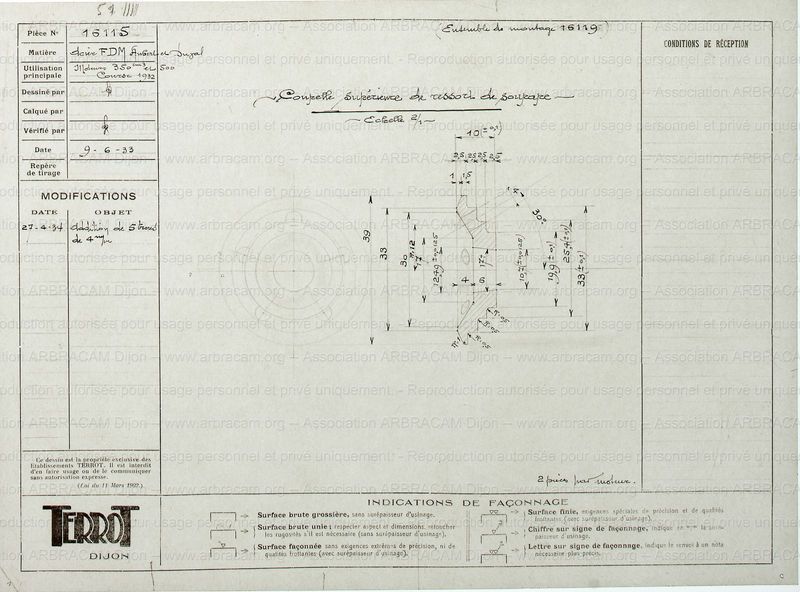 Pièce N° 16115
(Ensemble de montage 16119)
CONDITIONS DE RÉCEPTION
Matière Acier FDM Aubert et Duval
Utilisation principale Moteurs 350 cm3 et 500
Course 1932
Dessiné par
Coupelle supérieure de ressort de soupape
Calqué par
Echelle 2/1
Vérifié par
Date 9-6-33
Repère de tirage
MODIFICATIONS
DATE OBJET
27-4-34 Addition de 5 trous
de 4 m/m
10 (± 0,1)
2,5 2,5 2,5 2,5
1 1,5
30°
39
33
30
17
4 6
33 (± 0,1)
R. 0,5
R. 0,5
R. 0,5
Ce dessin est la propriété exclusive des
Etablissements TERROT. Il est interdit
d'en faire usage ou de le communiquer
sans autorisation expresse.
(Loi du 11 Mars 1902.)
2 pièces par moteur.
TERROT
DIJON
INDICATIONS DE FAÇONNAGE
Surface brute grossière, sans surépaisseur d'usinage.
Surface brute unie : respecter aspect et dimensions, retoucher
les rugosités s'il est nécessaire (sans surépaisseur d'usinage).
Surface façonnée sans exigences extrêmes de précision, ni de
qualités frottantes (avec surépaisseur d'usinage).
Surface finie, exigences spéciales de précision et de qualités
frottantes (avec surépaisseur d'usinage).
Chiffre sur signe de façonnage, indique en m/m la surépaisseur d'usinage.
Lettre sur signe de façonnage, indique le renvoi à un nota
nécessaire plus précis.
www.arbracam.org – Association ARBRACAM Dijon
Reproduction autorisée pour usage personnel et privé uniquement.